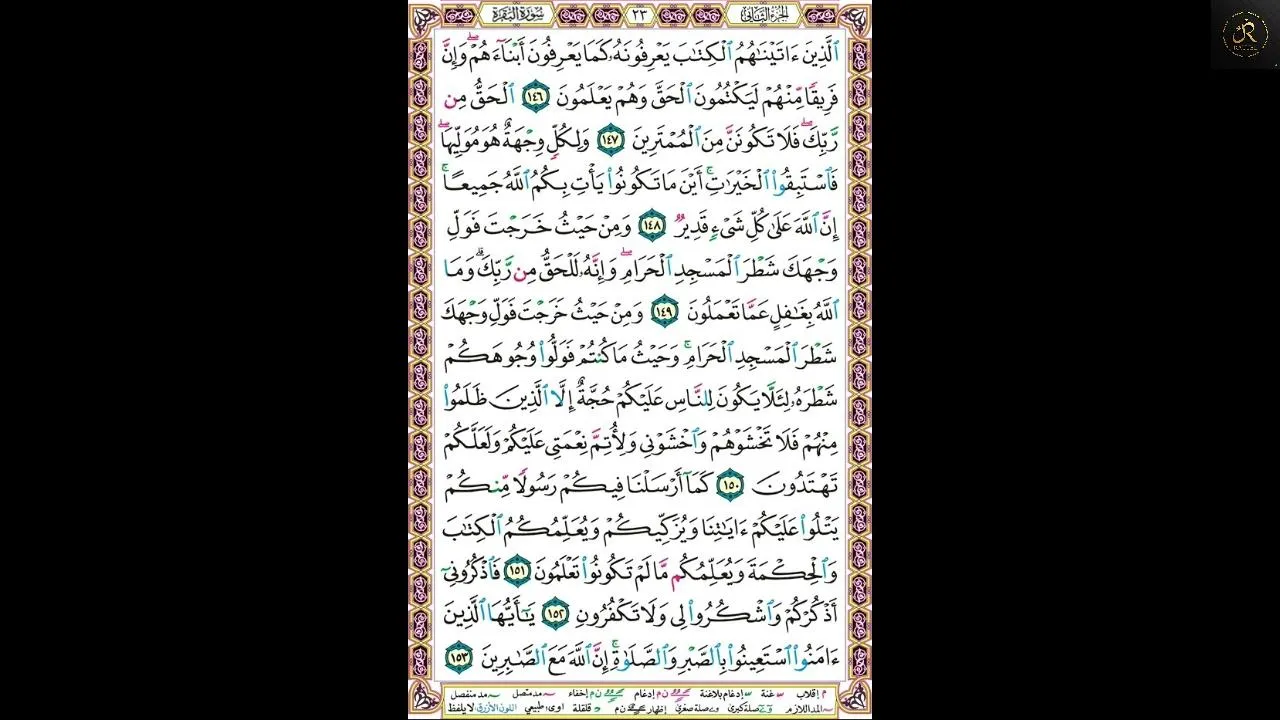 الجزء الثاني ٢٣ سورة البقرة
ٱلَّذِينَ ءَاتَيْنَٰهُمُ ٱلْكِتَٰبَ يَعْرِفُونَهُۥ كَمَا يَعْرِفُونَ أَبْنَآءَهُمْ ۖ وَإِنَّ
فَرِيقًا مِّنْهُمْ لَيَكْتُمُونَ ٱلْحَقَّ وَهُمْ يَعْلَمُونَ ١٤٦ ٱلْحَقُّ مِن
رَّبِّكَ ۖ فَلَا تَكُونَنَّ مِنَ ٱلْمُمْتَرِينَ ١٤٧ وَلِكُلٍّ وِجْهَةٌ هُوَ مُوَلِّيهَا ۖ
فَٱسْتَبِقُوا۟ ٱلْخَيْرَٰتِ ۚ أَيْنَ مَا تَكُونُوا۟ يَأْتِ بِكُمُ ٱللَّهُ جَمِيعًا ۚ
إِنَّ ٱللَّهَ عَلَىٰ كُلِّ شَىْءٍ قَدِيرٌ ١٤٨ وَمِنْ حَيْثُ خَرَجْتَ فَوَلِّ
وَجْهَكَ شَطْرَ ٱلْمَسْجِدِ ٱلْحَرَامِ ۖ وَإِنَّهُۥ لَلْحَقُّ مِن رَّبِّكَ ۗ وَمَا
ٱللَّهُ بِغَٰفِلٍ عَمَّا تَعْمَلُونَ ١٤٩ وَمِنْ حَيْثُ خَرَجْتَ فَوَلِّ وَجْهَكَ
شَطْرَ ٱلْمَسْجِدِ ٱلْحَرَامِ ۚ وَحَيْثُ مَا كُنتُمْ فَوَلُّوا۟ وُجُوهَكُمْ
شَطْرَهُۥ لِئَلَّا يَكُونَ لِلنَّاسِ عَلَيْكُمْ حُجَّةٌ إِلَّا ٱلَّذِينَ ظَلَمُوا۟
مِنْهُمْ فَلَا تَخْشَوْهُمْ وَٱخْشَوْنِى وَلِأُتِمَّ نِعْمَتِى عَلَيْكُمْ وَلَعَلَّكُمْ
تَهْتَدُونَ ١٥٠ كَمَآ أَرْسَلْنَا فِيكُمْ رَسُولًا مِّنكُمْ
يَتْلُوا۟ عَلَيْكُمْ ءَايَٰتِنَا وَيُزَكِّيكُمْ وَيُعَلِّمُكُمُ ٱلْكِتَٰبَ
وَٱلْحِكْمَةَ وَيُعَلِّمُكُم مَّا لَمْ تَكُونُوا۟ تَعْلَمُونَ ١٥١ فَٱذْكُرُونِىٓ
أَذْكُرْكُمْ وَٱشْكُرُوا۟ لِى وَلَا تَكْفُرُونِ ١٥٢ يَٰٓأَيُّهَا ٱلَّذِينَ
ءَامَنُوا۟ ٱسْتَعِينُوا۟ بِٱلصَّبْرِ وَٱلصَّلَوٰةِ ۚ إِنَّ ٱللَّهَ مَعَ ٱلصَّٰبِرِينَ ١٥٣
م إقلاب غنة إدغام بلاغنة ن م إدغام ن م إخفاء مد متصل مد منفصل
المد اللازم صلة كبرى صلة صغرى إظهار ن م قلقلة اوى: طبيعي اللون الأزرق لا يلفظ